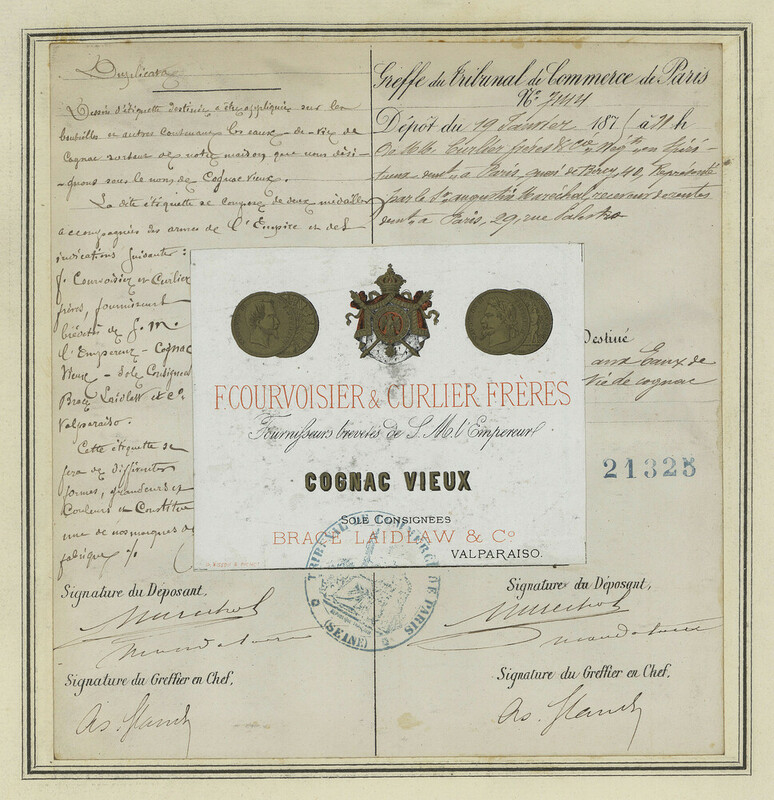 Duplicata
Dessin d'étiquette destinée a être appliquée sur les
bouteilles et autres contenant les eaux-de-vie de
Cognac sortant de notre maison que nous dési-
-gnons sous le nom de Cognac vieux.
La dite étiquette se compose de deux médailles
accompagnées des armes de l'Empire et des
indications suivantes :
f. Courvoisier et Curlier
frères, fournisseurs
brévetés de S. M.
l'Empereur - Cognac
Vieux - Sole Consignees
Brace Laidlaw et Co
Valparaiso.
Cette étiquette se
fera de différentes
formes, grandeurs et
Couleurs et Constitue
une de nos marques de
fabrique
Signature du Déposant,
Marechal
mandataire
Signature du Greffier en Chef,
Greffe du Tribunal de Commerce de Paris
No
Dépôt du 19 Janvier 187 à h
De MM. Curlier frères & Cie Négts en
dmt a Paris, quai de Bercy, 40, Représenté
par le Sr Augustin Maréchal, receveur de rentes
dmt a Paris, 29, rue
Destiné
aux Eaux de
Vie de cognac
21325
F. COURVOISIER & CURLIER FRÈRES
Fournisseurs brevetés de S. M. l'Empereur
COGNAC VIEUX
SOLE CONSIGNEES
BRACE LAIDLAW & Co
VALPARAISO.
TRIBUNAL DE COMMERCE DE PARIS
(SEINE)
Signature du Déposant,
Marechal
mandataire
Signature du Greffier en Chef,